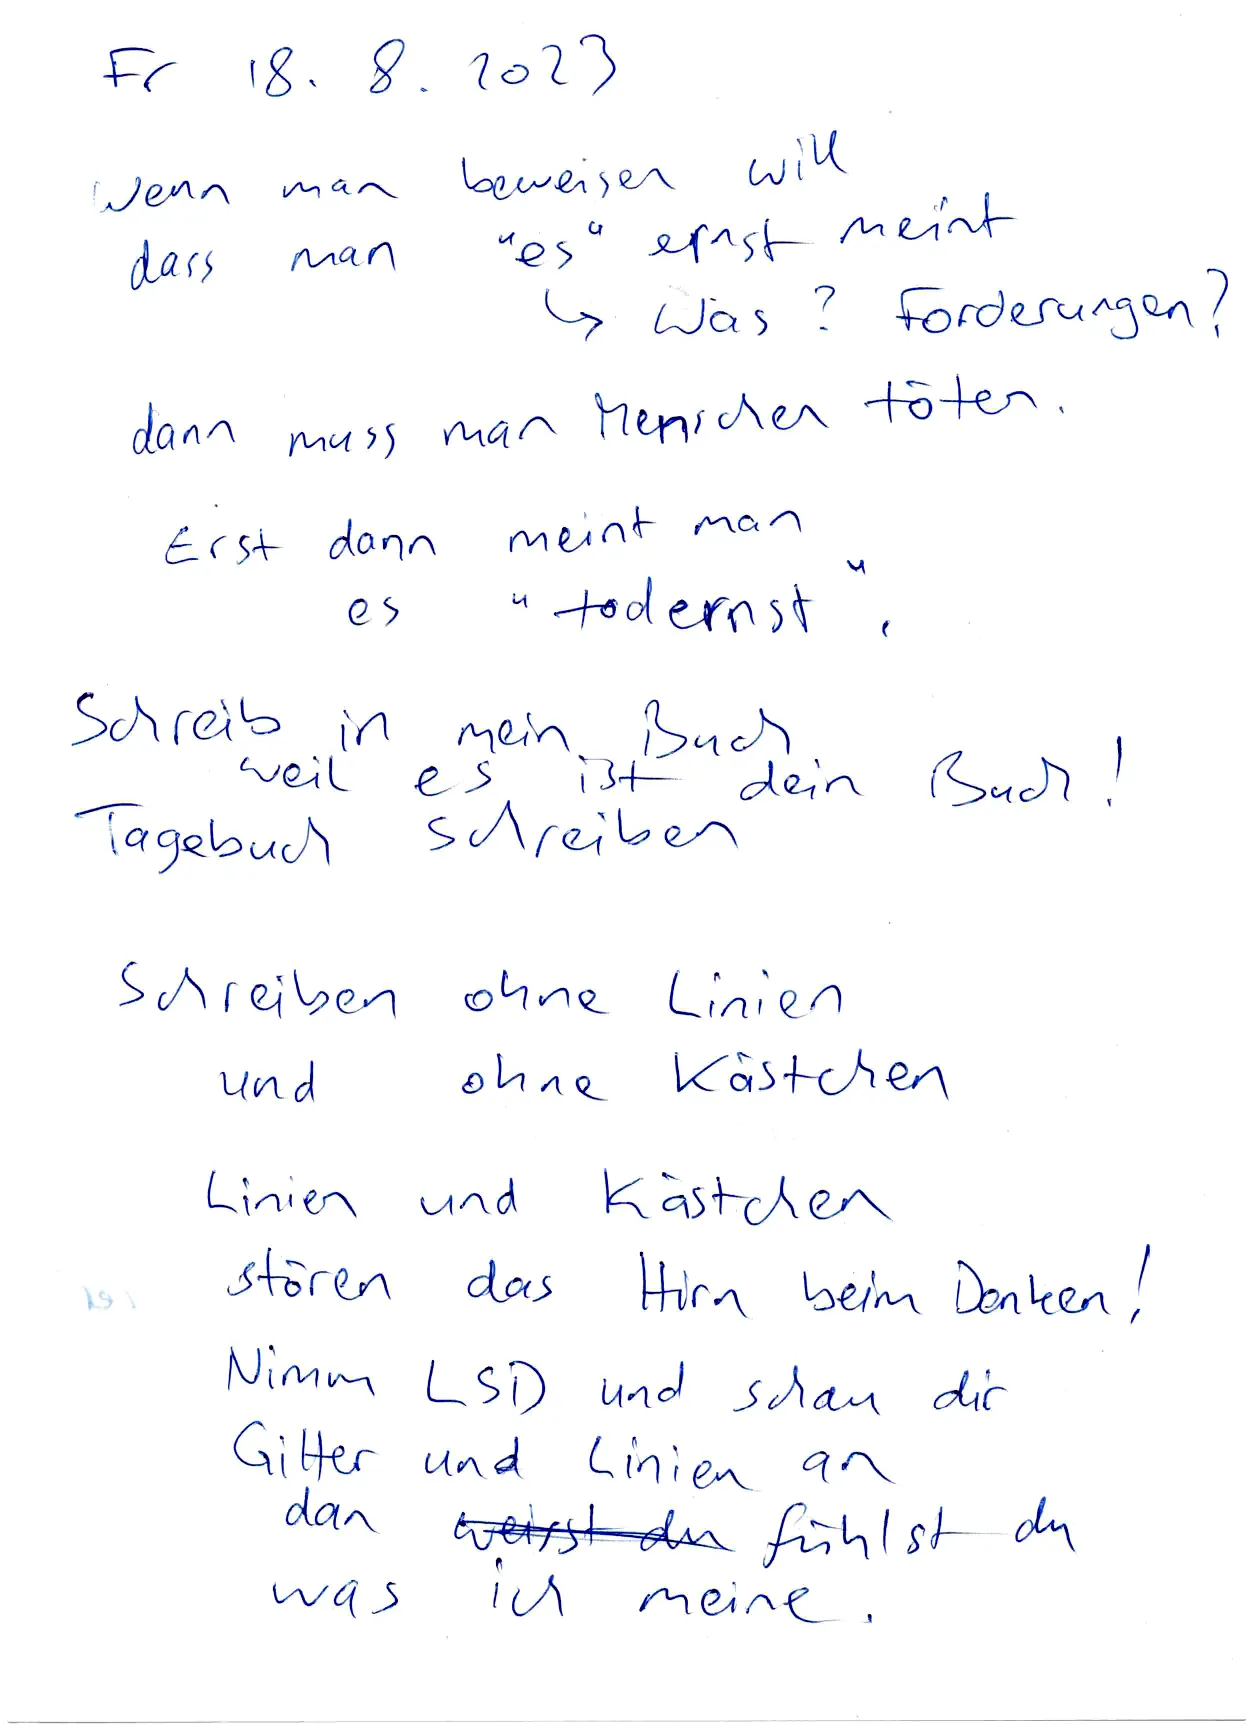 Fr 18. 8. 2023
Wenn man beweisen will
dass man "es" ernst meint
↳ Was? Forderungen?
dann muss man Menschen töten.
Erst dann meint man
es "todernst".
Schreib in mein Buch
weil es ist dein Buch!
Tagebuch schreiben
Schreiben ohne Linien
und ohne Kästchen
Linien und Kästchen
stören das Hirn beim Denken!
Nimm LSD und schau dir
Gitter und Linien an
dan weisst du fühlst du
was ich meine.